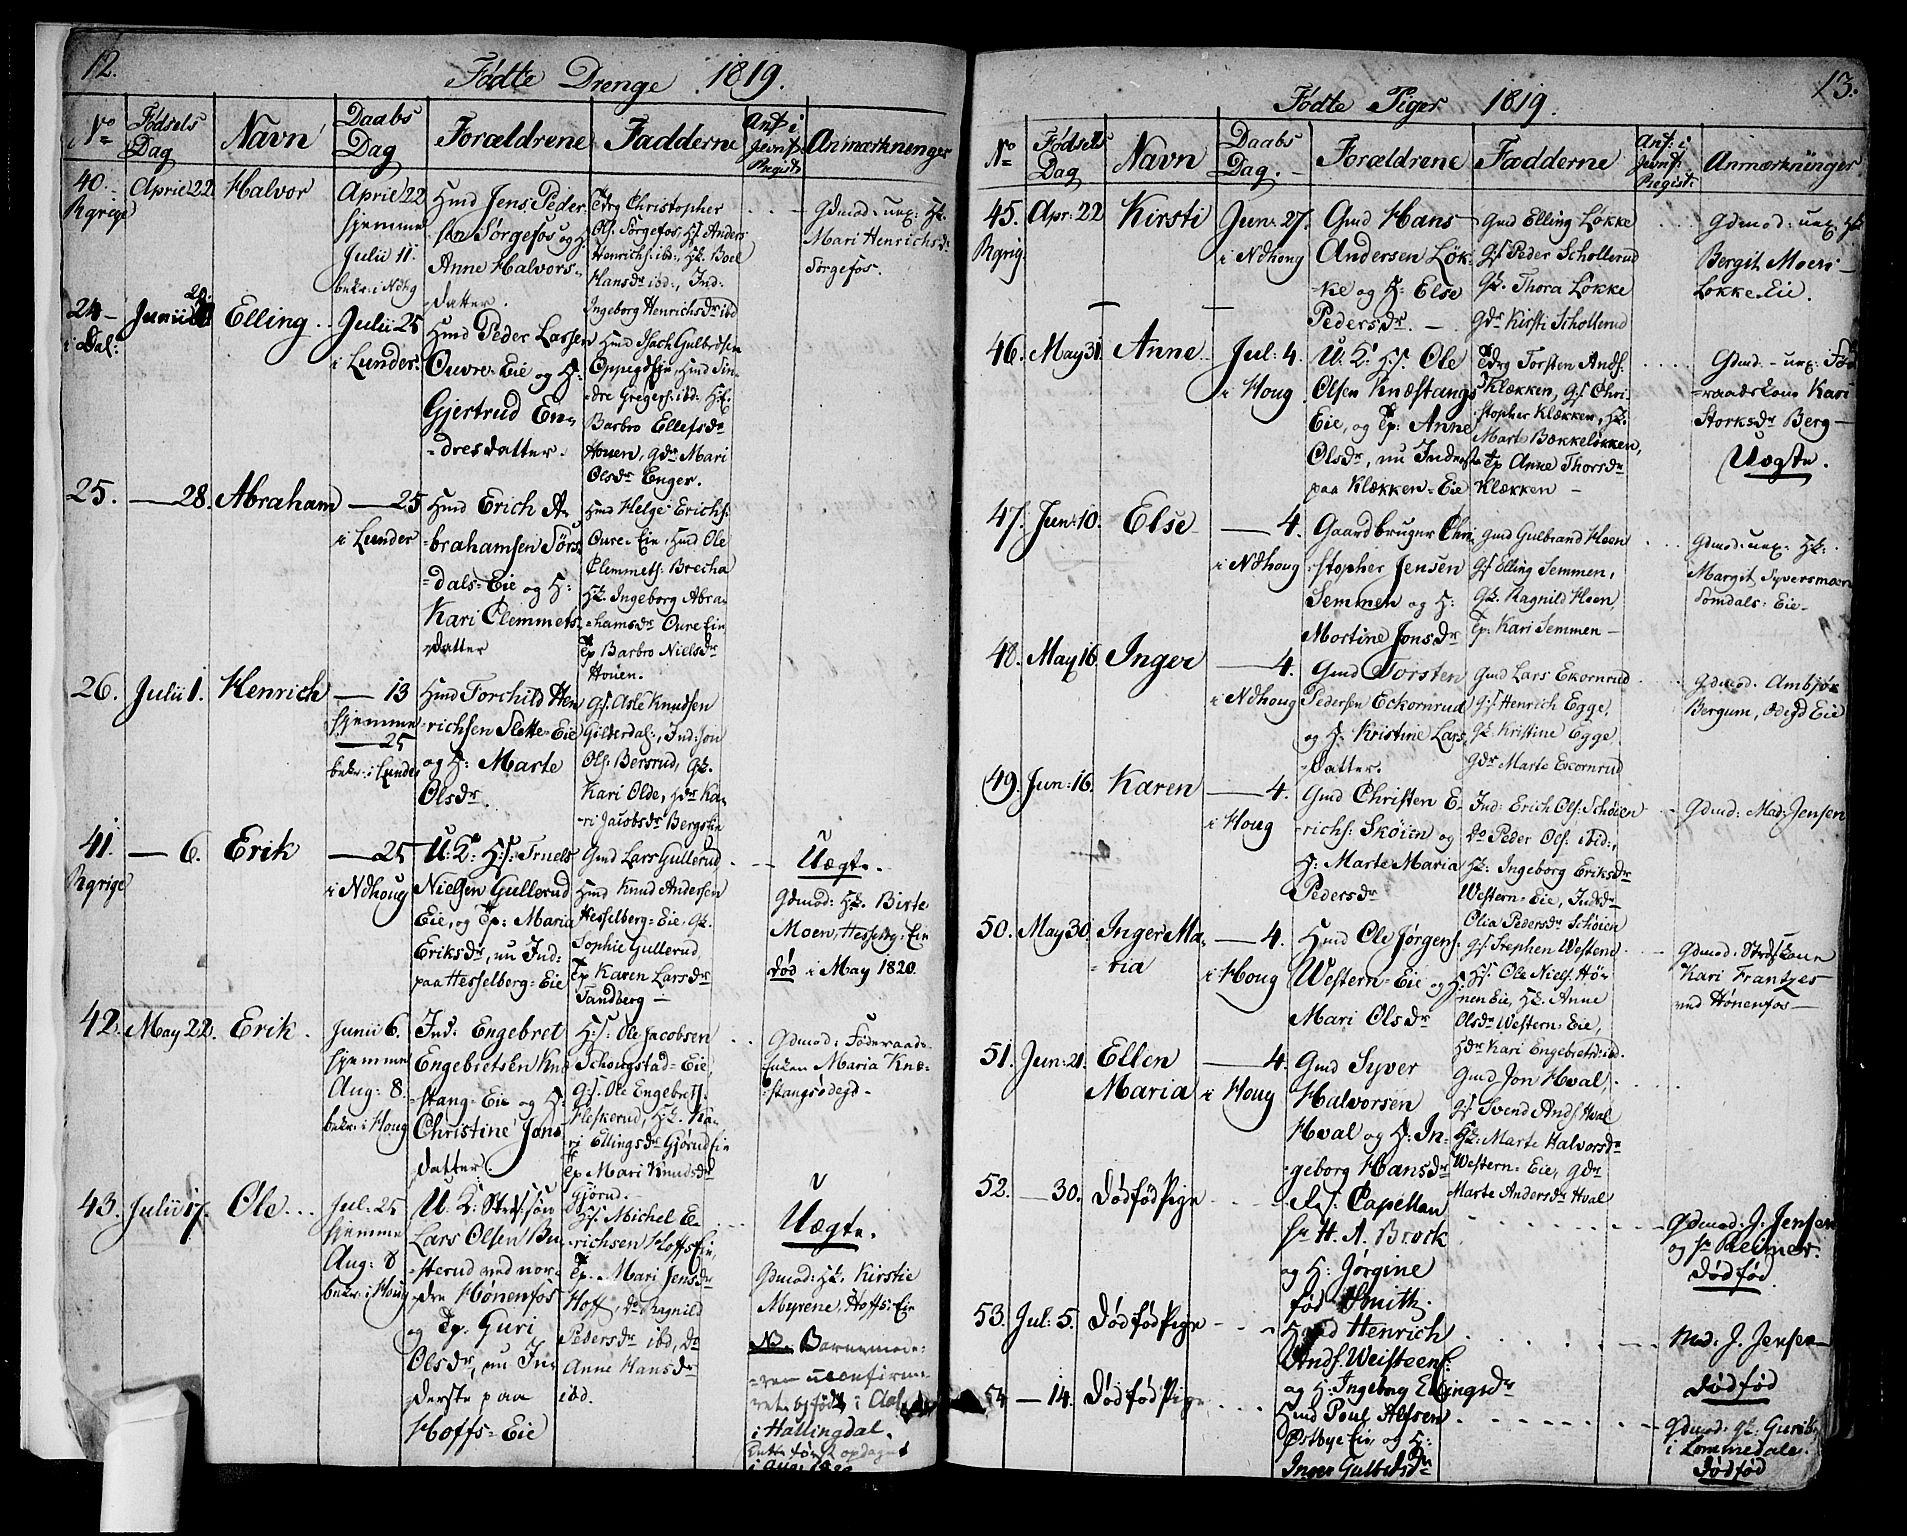 12.
Fødte Drenge 1819.
No
Fødsels Dag
Navn
Daabs Dag
Forældrene
Fadderne
Ant: i Jevnf: Regist:
Anmærkninger
40.
Rgrige
April 22
Halvor
April 22
hjemme
Julii 11.
bekr: i Ndhg
Hmd Jens Peder
sen Sørgefos og H:
Anne Halvors-
datter.
Christopher
Ols: Sørgefos, Hs: Anders
Henrichs: ibd:, Hk: Boel
Hansdr ibd:, Ind:
Ingeborg Henrichsdr ibd
Gdmod: uex: Hk:
Mari Henrichsdr
Sørgefos.
24
i Ådal:
Junii
Elling
Julii 25
i Lunder
Hmd Peder Larsen
Ouvre-Eie og H:
Gjertrud En-
dresdatter.
Hmd Isach Gulbrdsen
Oppegdseie, Hmd Sin-
dre Gregers: ibd: Hk.
Barbro Ellefsdr
Houen, gdr Mari
Olsdr Enger.
25.
— 28.
Abraham
— 25
i Lunder
Hmd Erich A-
brahamsen Sørs-
dals-Eie og H:
Kari Clemmets-
datter
Hmd Helge Erichs:
Oure-Eie, Hmd Ole
Clemmets: Brecha
Hk. Ingeborg Abra-
hamsdr Oure Eie
Tp Barbro Nielsdr
Houen.
26.
Julii 1.
Henrich
— 13
hjemme
— 25
bekr: i Lunder
Hmd Torchild Hen
richsen Slette-Eie
og H: Marte
Olsdr.
Gs. Asle Knudsen
Gilderdal:, Ind: Jon
Ols: Bersrud, gk.
Kari Olde, Hdr Ka-
ri Jacobsdr Bergstie
41.
Rgrige
— 6.
Erik
— 25
i Ndhoug
U: K: Hs:
Nielsen Gullerud
Eie, og Tp: Maria
Eriksdr, nu Ind:
paa Hesselberg-Eie
Gmd Lars Gullerud
Hmd Knud Andersen
Hesselberg-Eie, Gk.
Sophie Gullerud,
Tp Karen Larsdr
Tandberg —
Uægte.
Gdmod: Hk. Birte
Moen, Hesselbg: Eie
død i May 1820.
42.
May 22.
Erik.
Junii 6.
hjemme
Aug: 8
bekr: i Houg
Ind: Engebret
Engebretsen Knæ
stang-Eie og H:
Christine Jons-
datter.
Hs: Ole Jacobsen
Schougstad-Eie,
Gs. Ole Engebrets:
Heskerud, Hk. Ka-
ri Ellingsdr Gjørud Eie
Tp Mari Knudsdr
Gjørud.
Gdmod: Føderaads-
Enken Maria Knæ-
stangsødegd-
43.
Julii 17.
Ole
Jul: 25
hjemme
Aug: 8
bekr: i Houg
U: K: Strds: søn
Lars Olsen Bu-
sterud ved nor-
dre Hønenfos
og Tp. Guri
Olsdr, nu In-
derste paa
Hoffs-Eie
Hs. Michel E-
richsen Hoffs Eie,
Tp. Mari Jensdr
Hoff, do Ragnild
Pedersdr ibd, do
Anne Hansdr
ibd.
Uægte.
Gdmod: Hk. Kirstie
Myrene, Hoffs-Eie
NB. Barnemode-
ren uconfirme-
ret & født i Aal
i Hallingdal.
Dette først opdaget
i Aug: 1820
13.
Fødte Piger 1819.
No
Fødsels Dag
Navn
Daabs Dag.
Forældrene
Fadderne
Ant: i Jevnf: Regist:
Anmærkninger
45.
Rgrig
Apr: 22
Kirsti
Jun: 27.
i Ndhoug
Gmd Hans
Andersen Løk-
ke og H: Else
Pedersdr. —
Gmd Elling Løkke
Gs Peder Schollerud
Gk. Thora Løkke
Gdr Kirsti Schollerud
Gdmod: uex: Hk
Bergit Moen-
Løkke Eie.
46.
May 31.
Anne
Jul: 4.
i Houg
U: K: Hs. Ole
Olsen Knæstangs
Eie, og Tp: Anne
Olsdr, nu Inderste
paa Klækken-Eie
Torsten Ands:
Klækken, Gs Chri-
stopher Klækken, Hk:
Marte Bækkeløkken,
Tp Anne Thorsdr
Klækken —
Gdmod - uex: Føde
raadskone Kari
Storksdr Berg —
Uægte.
47.
Jun: 10.
Else
— 4.
i Ndhoug
Gaardbruger Chri
stopher Jensen
Semmen og H:
Mortine Jonsdr
Gmd Gulbrand Hoen
Gs Elling Semmen,
Gk. Ragnild Hoen,
Tp: Kari Semmen —
Gdmod: uex: Hk:
Margit Syversmoen
Somdals: Eie-
48.
May 16.
Inger
— 4.
i Ndhoug
Gmd Torsten
Pedersen Eckornrud
og H: Kristine Lars
datter.
Gmd Lars Ekornrud
Gs Henrich Egge,
Gk. Kristine Egge
Gdr Marte Ekornrud
Gdmod. Ambjør
Bergum, ødegd Eie
49.
Jun: 16.
Karen
— 4.
i Houg
Gmd Christen E-
richs: Skøien og
H: Marte Maria
Pedersdr
Ind: Erich Ols: Schøien
do Peder Ols: ibid:,
Hk: Ingeborg Eriksdr
Western-Eie, Indsdr
Olia Pedersdr Schøien
Gdmod: Mad: Jensen
50.
May 30.
Inger Ma-
ria
— 4.
i Houg
Hmd Ole Jørgens:
Western-Eie og H:
Mari Olsdr
Gs. Stephen Western
Hs. Ole Niels: Høn
nen Eie, Hk. Anne
Olsdr Western-Eie,
Hdr Kari Engebretsdr ibd.
Gdmod Strdskone
Kari Frantzes
ved Hønenfos —
51.
Jun: 21.
Ellen
Maria
— 4.
i Houg
Gmd Syver
Halvorsen
Hval og H: In-
geborg Hansdr
Gmd Jon Hval,
Gs Svend Ands: Hval
Hk: Marte Halvorsdr
Western-Eie, Gdr
Marte Andersdr Hval
52.
— 30.
Dødfød Pige
Capellan
Hr H. A. Brock
og H: Jørgine
fød Smith.
Gdmod: J. Jensen
og Reimers.
Dødfød.
53.
Jul: 5.
Dødfød Pige
Henrich
Ands: Weisteens:
og H: Ingeborg Ellingsdr
Mad: J. Jensen
Dødfød
54
— 14.
Dødfød Pige
Hmd Poul Alfsen
Østbye Eie, og H:
Inger Gulbrdsdr
Gdmod: Gk: Guri
i Lommedalen.
Dødfød